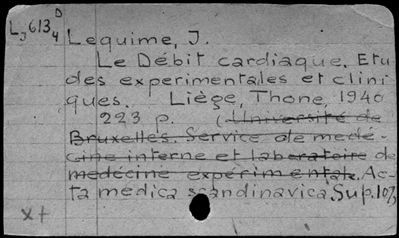 L3613 D4
Lequime, J.
Le Débit cardiaque. Etu
des experimentales et clini
ques. Liège, Thone, 1940
223 p. (Université de
Bruxelles. Service de medé-
cine interne et laboratoire de
medécine expérimentale. Ac-
ta medica scandinavica. Sup. 107)
x+